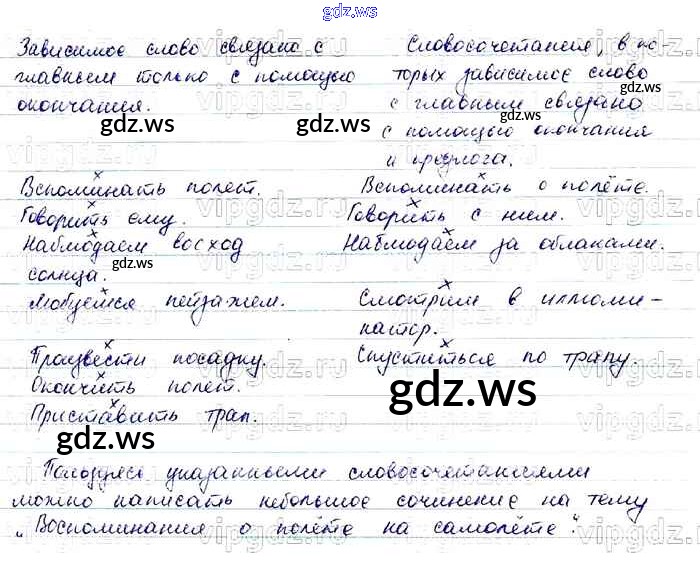 gdz.ws
Зависимое слово связано с
главным только с помощью
окончания.
Словосочетания, в ко-
торых зависимое слово
с главным связано
с помощью окончания
и предлога.
gdz.ws gdz.ws
Вспоминать полет. Вспоминать о полёте.
Говорить ему. Говорить с ним.
Наблюдаем восход Наблюдаем за облаками.
солнца.
gdz.ws gdz.ws
Любуемся пейзажем. Смотрим в иллюми-
натор.
Произвести посадку. Спуститься по трапу.
Окончить полет.
Приставить трап.
gdz.ws
gdz.ws
Пользуясь указанными словосочетаниями
можно написать небольшое сочинение на тему
„Воспоминания о полёте на самолёте".
gdz.ws gdz.ws